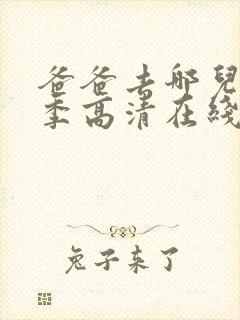 爸爸去哪兒
季高清在綫
兔子来了